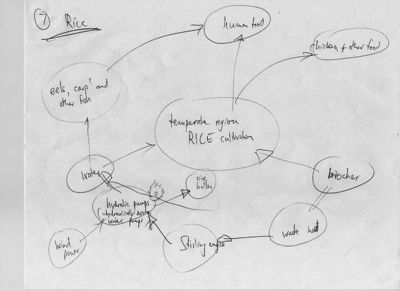 7 Rice
human food
chicken + other food
eels, carp and
other fish
temperate region
RICE cultivation
water
rice
hulls
biochar
hydraulic pumps
water pumps
wind
power
Stirling engine
waste heat